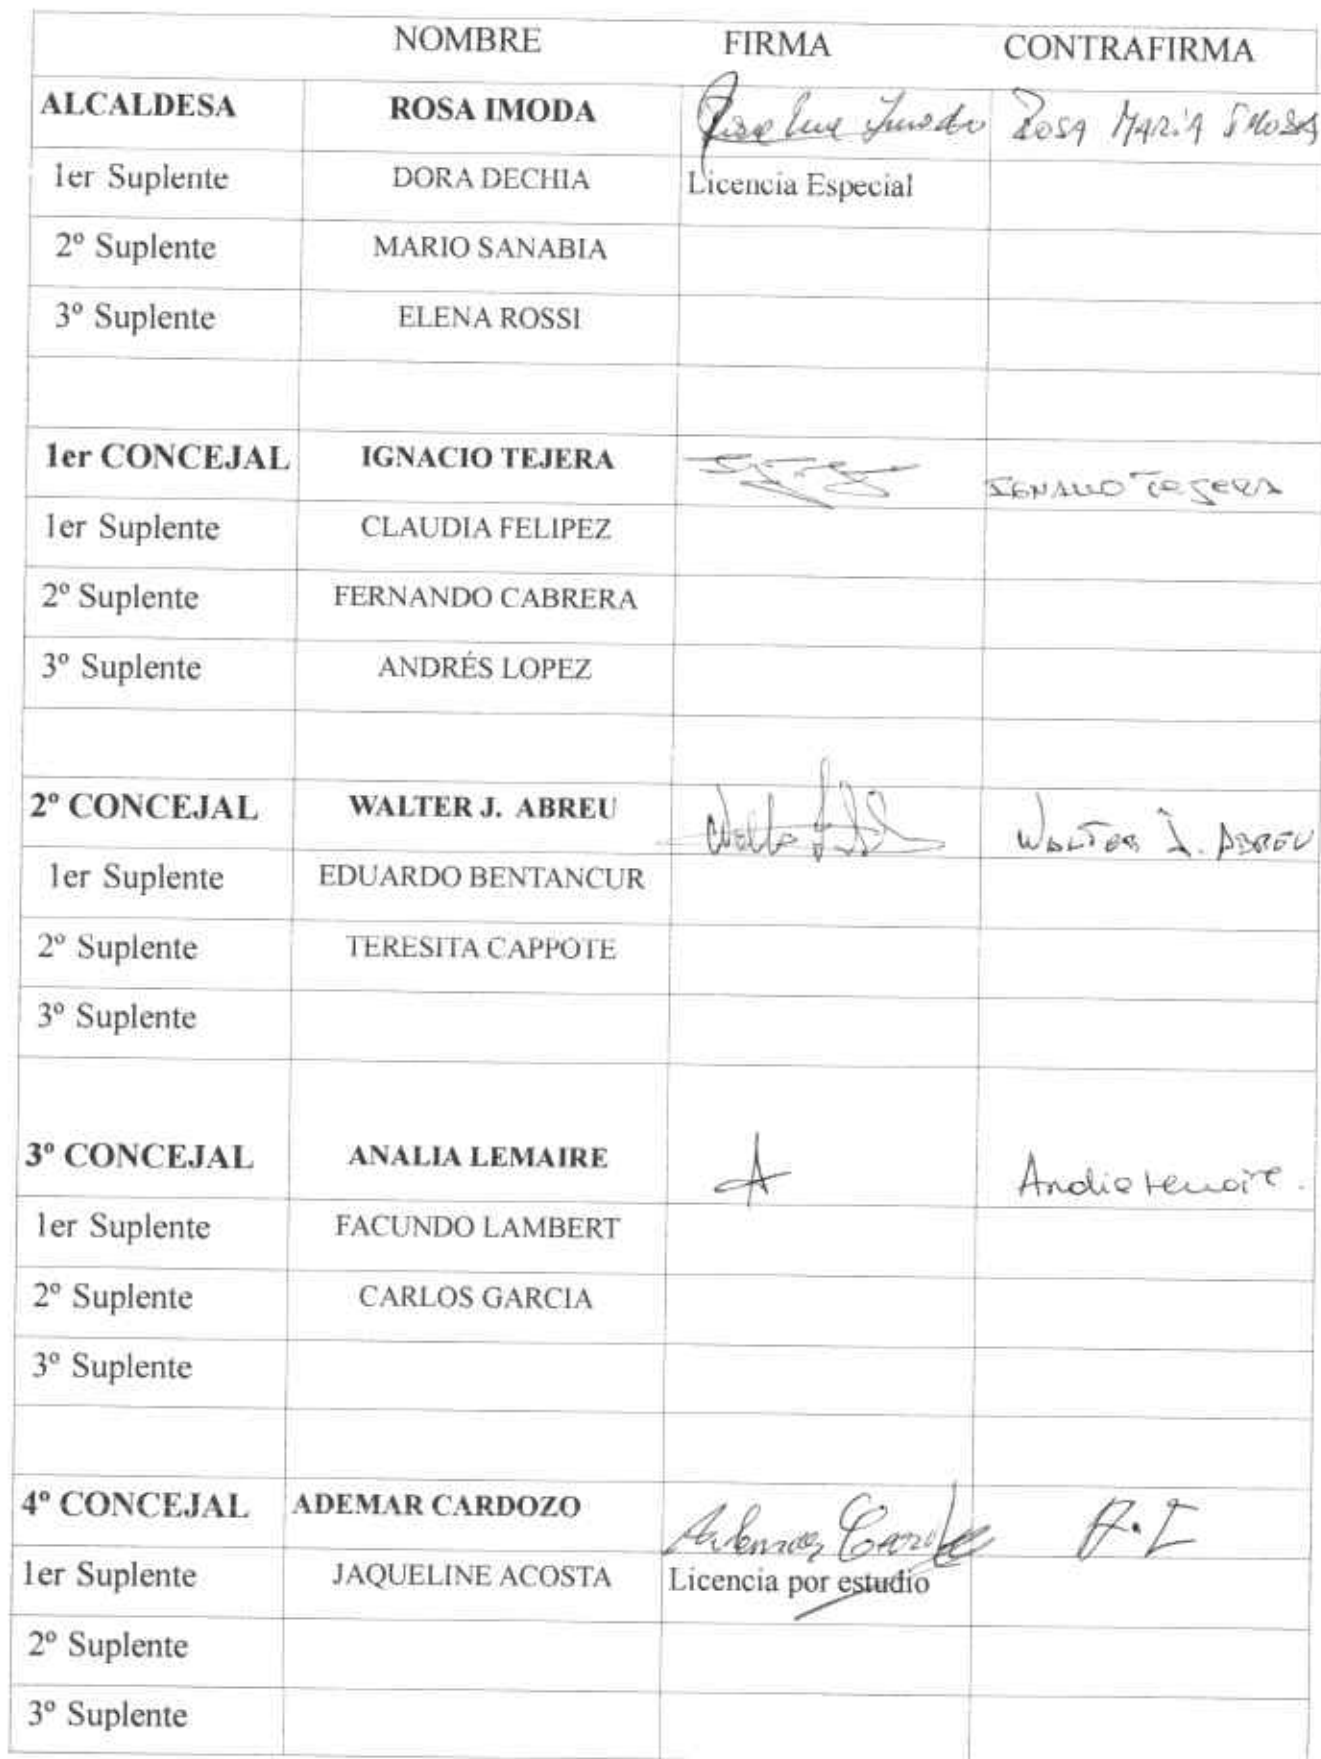 NOMBRE FIRMA CONTRAFIRMA
ALCALDESA ROSA IMODA Rosa Imoda ROSA MARIA IMODA
1er Suplente DORA DECHIA Licencia Especial
2º Suplente MARIO SANABIA
3º Suplente ELENA ROSSI
1er CONCEJAL IGNACIO TEJERA IGNACIO TEJERA
1er Suplente CLAUDIA FELIPEZ
2º Suplente FERNANDO CABRERA
3º Suplente ANDRÉS LOPEZ
2º CONCEJAL WALTER J. ABREU WALTER J. ABREU
1er Suplente EDUARDO BENTANCUR
2º Suplente TERESITA CAPPOTE
3º Suplente
3º CONCEJAL ANALIA LEMAIRE A Analia Lemaire.
1er Suplente FACUNDO LAMBERT
2º Suplente CARLOS GARCIA
3º Suplente
4º CONCEJAL ADEMAR CARDOZO Ademar Cardozo
1er Suplente JAQUELINE ACOSTA Licencia por estudio
2º Suplente
3º Suplente